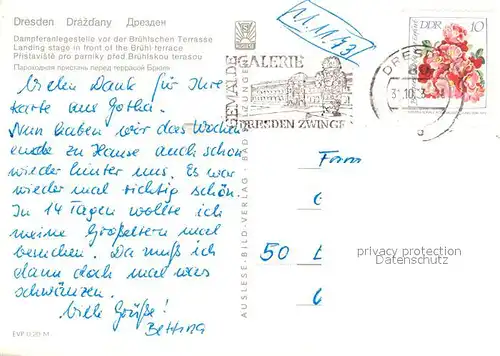 Dresden Drážďany Дрезден
Dampferanlegestelle vor der Brühlschen Terrasse
Landing stage in front of the Brühl terrace
Přístaviště pro parníky před Brühlskou terasou
Пароходная пристань перед террасой Брюля
Vielen Dank für Ihre
Karte aus Gotha.
Nun haben wir das Wochen
ende zu Hause auch schon
wieder hinter uns. Es war
wieder mal richtig schön.
In 14 Tagen wollte ich
meine Großeltern mal
besuchen. Da muß ich
dann doch mal was
schwänzen.
Viele Grüße!
Bettina
EVP 0,20 M
AUSLESE-BILD-VERLAG · BAD SALZUNGEN
11.11.73
GEMÄLDEGALERIE
DRESDEN ZWINGER
DRESD
DDR 10
50
privacy protection
Datenschutz